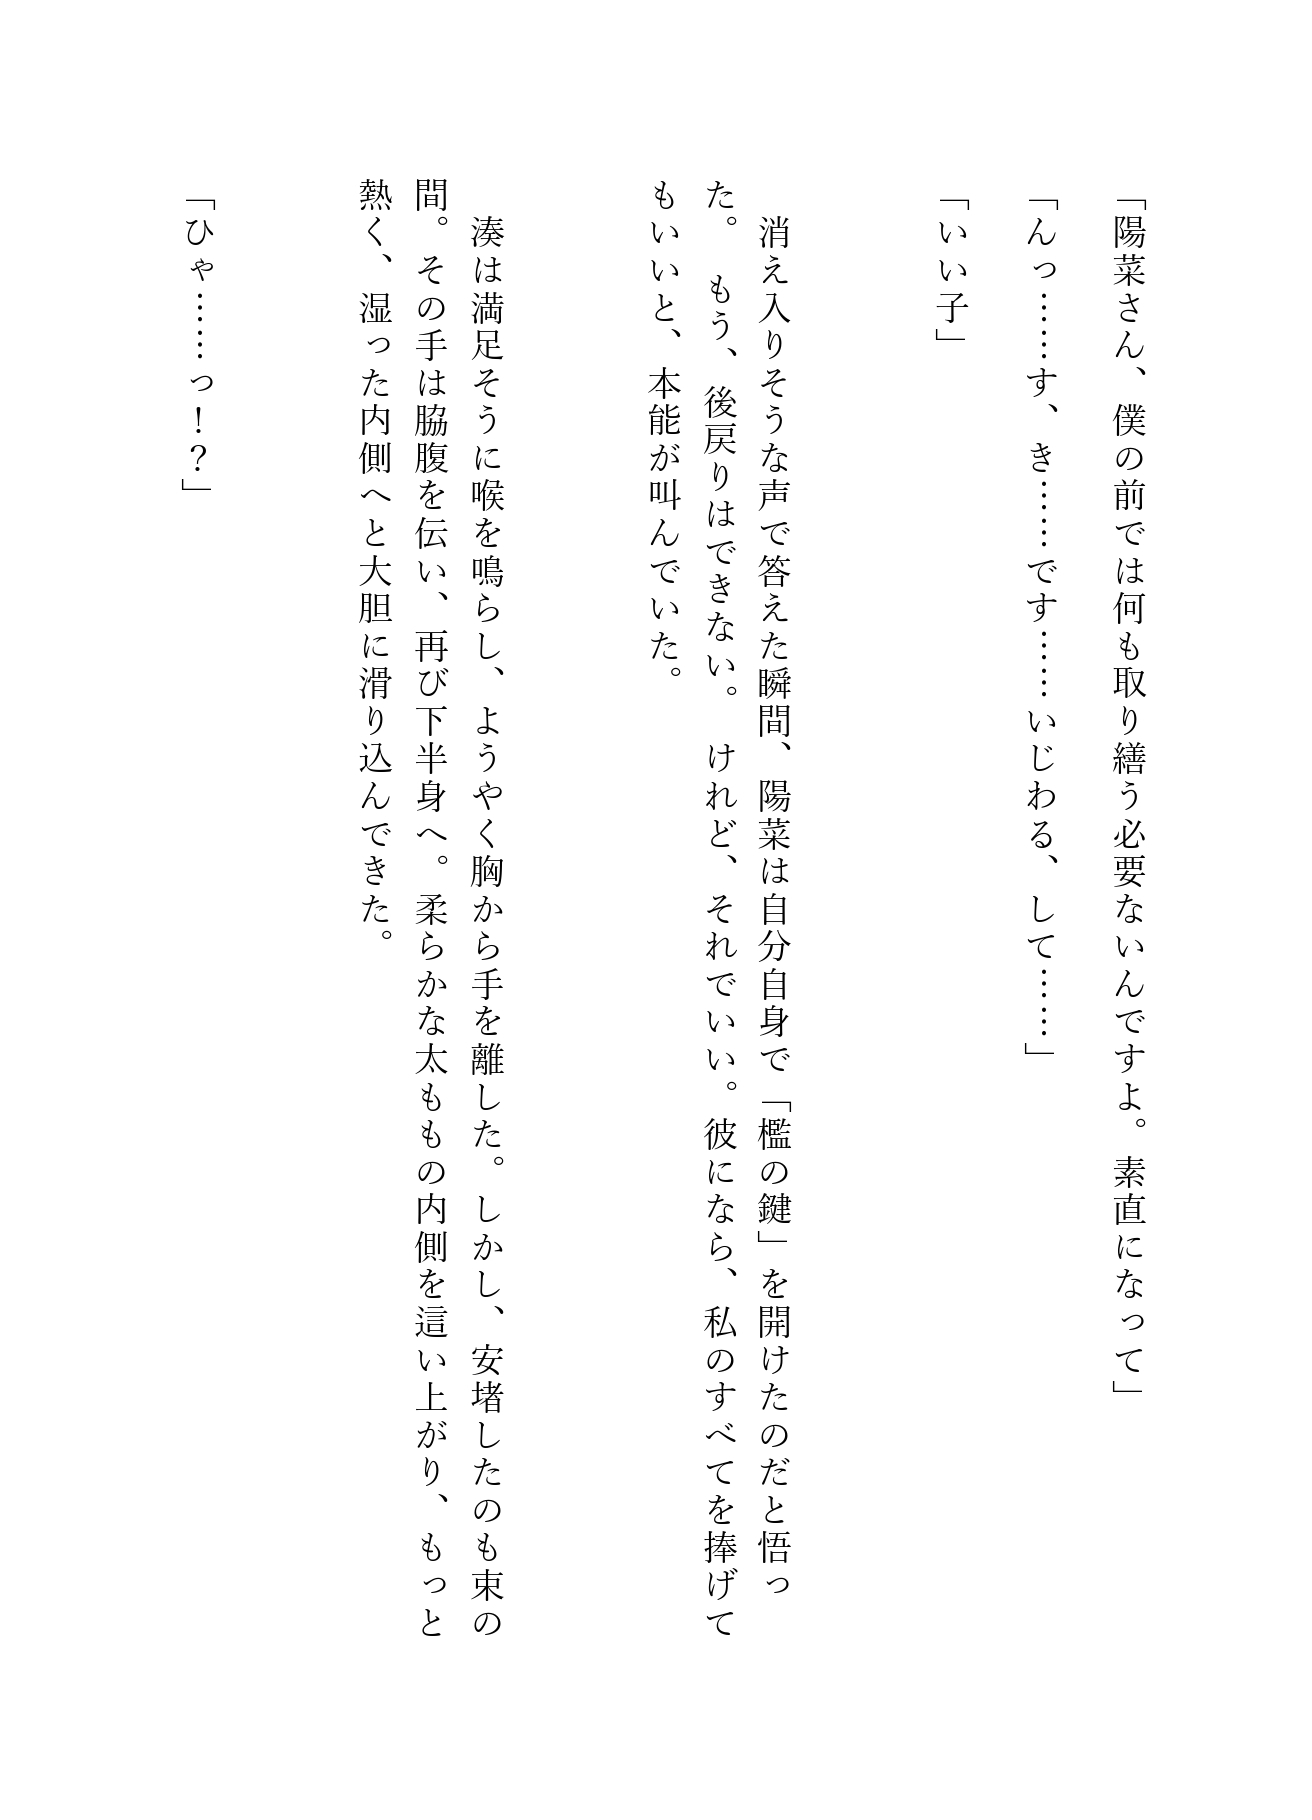 「陽菜さん、僕の前では何も取り繕う必要ないんですよ。素直になって」
「んっ……す、き……です……いじわる、して……」
「いい子」
　消え入りそうな声で答えた瞬間、陽菜は自分自身で「檻の鍵」を開けたのだと悟っ
た。　もう、後戻りはできない。　けれど、それでいい。彼になら、私のすべてを捧げて
もいいと、本能が叫んでいた。
　湊は満足そうに喉を鳴らし、ようやく胸から手を離した。しかし、安堵したのも束の
間。その手は脇腹を伝い、再び下半身へ。柔らかな太ももの内側を這い上がり、もっと
熱く、湿った内側へと大胆に滑り込んできた。
「ひゃ……っ！？」